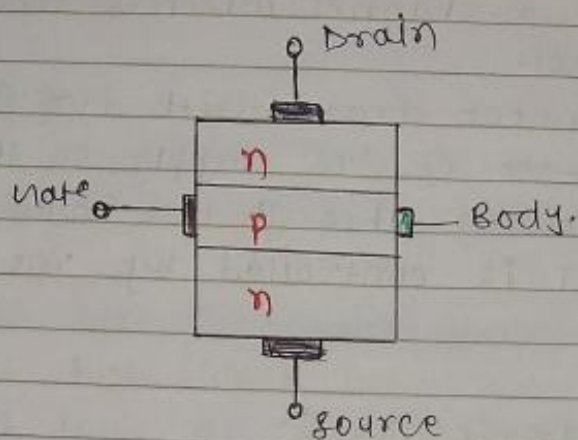 Drain
n
Gate
p
Body.
n
Source